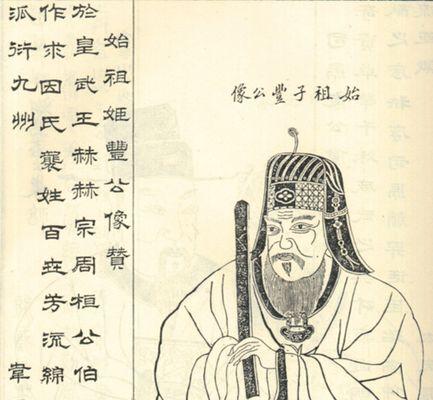 始祖子豐公像
始祖姬豐公像贊
於皇武王赫赫宗周桓公伯
作求因氏襲姓百世芳流綿
派衍九州 韋